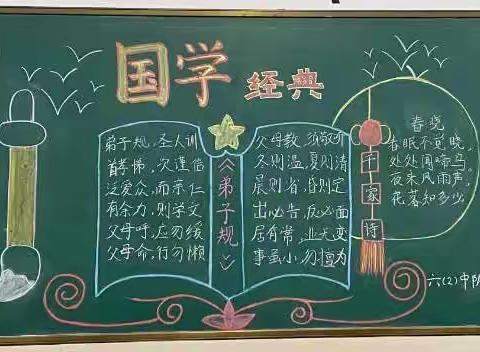 国学经典
弟子规，圣人训
首孝悌，次谨信
泛爱众，而亲仁
有余力，则学文
父母呼，应勿缓
父母命，行勿懒
《弟子规》
父母教，须敬听
冬则温，夏则凊
晨则省，昏则定
出必告，反必面
居有常，业无变
事虽小，勿擅为
千家诗
春晓
春眠不觉晓，
处处闻啼鸟。
夜来风雨声，
花落知多少。
六(2)中队